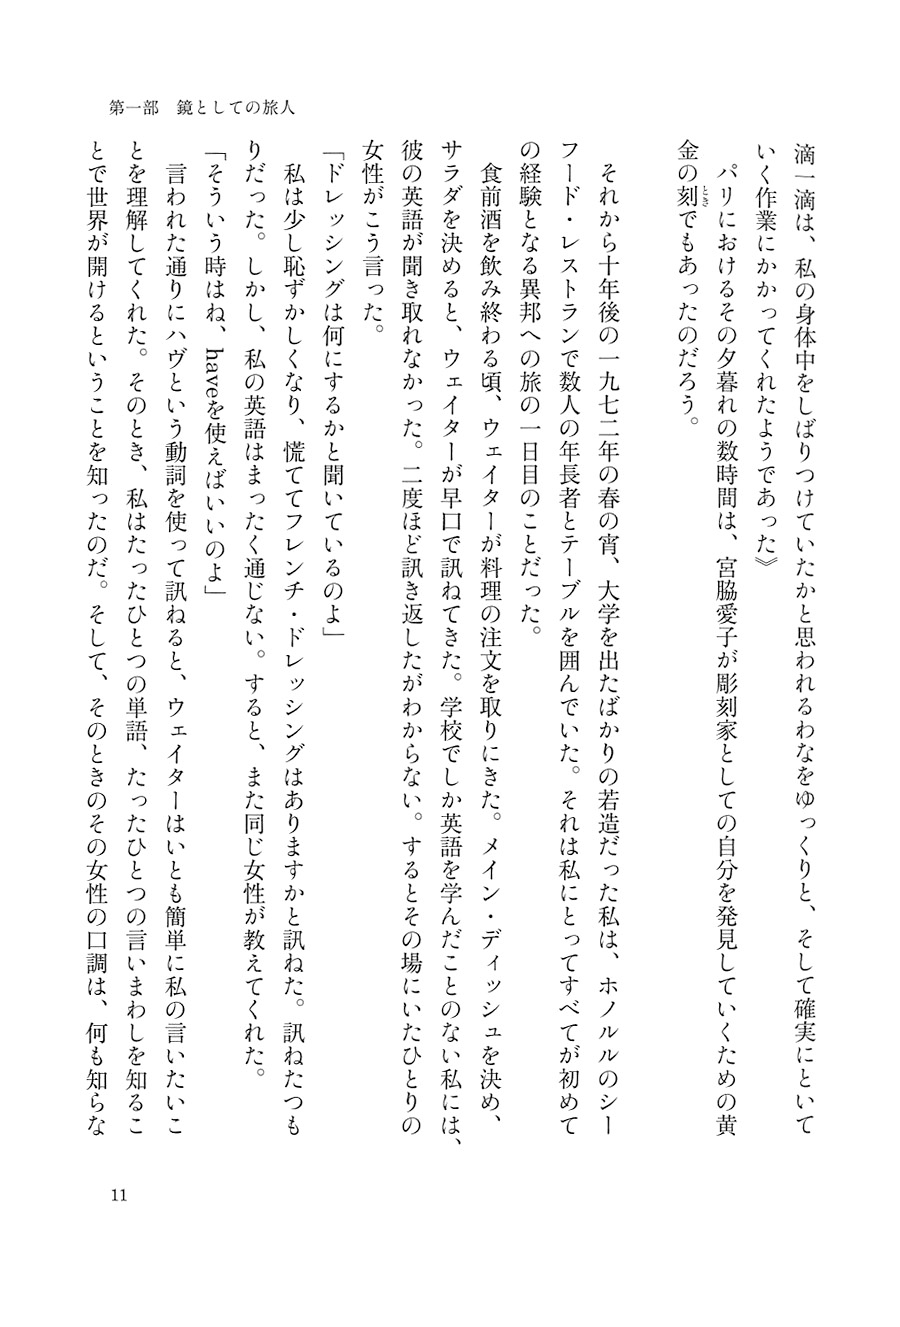 第一部　鏡としての旅人
滴一滴は、私の身体中をしばりつけていたかと思われるわなをゆっくりと、そして確実にといて
いく作業にかかってくれたようであった》
　パリにおけるその夕暮れの数時間は、宮脇愛子が彫刻家としての自分を発見していくための黄
金の刻でもあったのだろう。
とき
　それから十年後の一九七二年の春の宵、大学を出たばかりの若造だった私は、ホノルルのシー
フード・レストランで数人の年長者とテーブルを囲んでいた。それは私にとってすべてが初めて
の経験となる異邦への旅の一日目のことだった。
　食前酒を飲み終わる頃、ウェイターが料理の注文を取りにきた。メイン・ディッシュを決め、
サラダを決めると、ウェイターが早口で訊ねてきた。学校でしか英語を学んだことのない私には、
彼の英語が聞き取れなかった。二度ほど訊き返したがわからない。するとその場にいたひとりの
女性がこう言った。
「ドレッシングは何にするかと聞いているのよ」
　私は少し恥ずかしくなり、慌ててフレンチ・ドレッシングはありますかと訊ねた。訊ねたつも
りだった。しかし、私の英語はまったく通じない。すると、また同じ女性が教えてくれた。
「そういう時はね、haveを使えばいいのよ」
　言われた通りにハヴという動詞を使って訊ねると、ウェイターはいとも簡単に私の言いたいこ
とを理解してくれた。そのとき、私はたったひとつの単語、たったひとつの言いまわしを知るこ
とで世界が開けるということを知ったのだ。そして、そのときのその女性の口調は、何も知らな
11